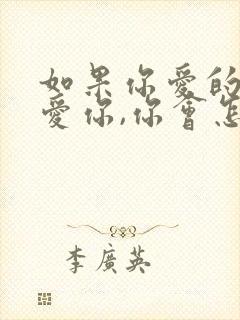 如果你愛的
愛你,你會怎
李廣英